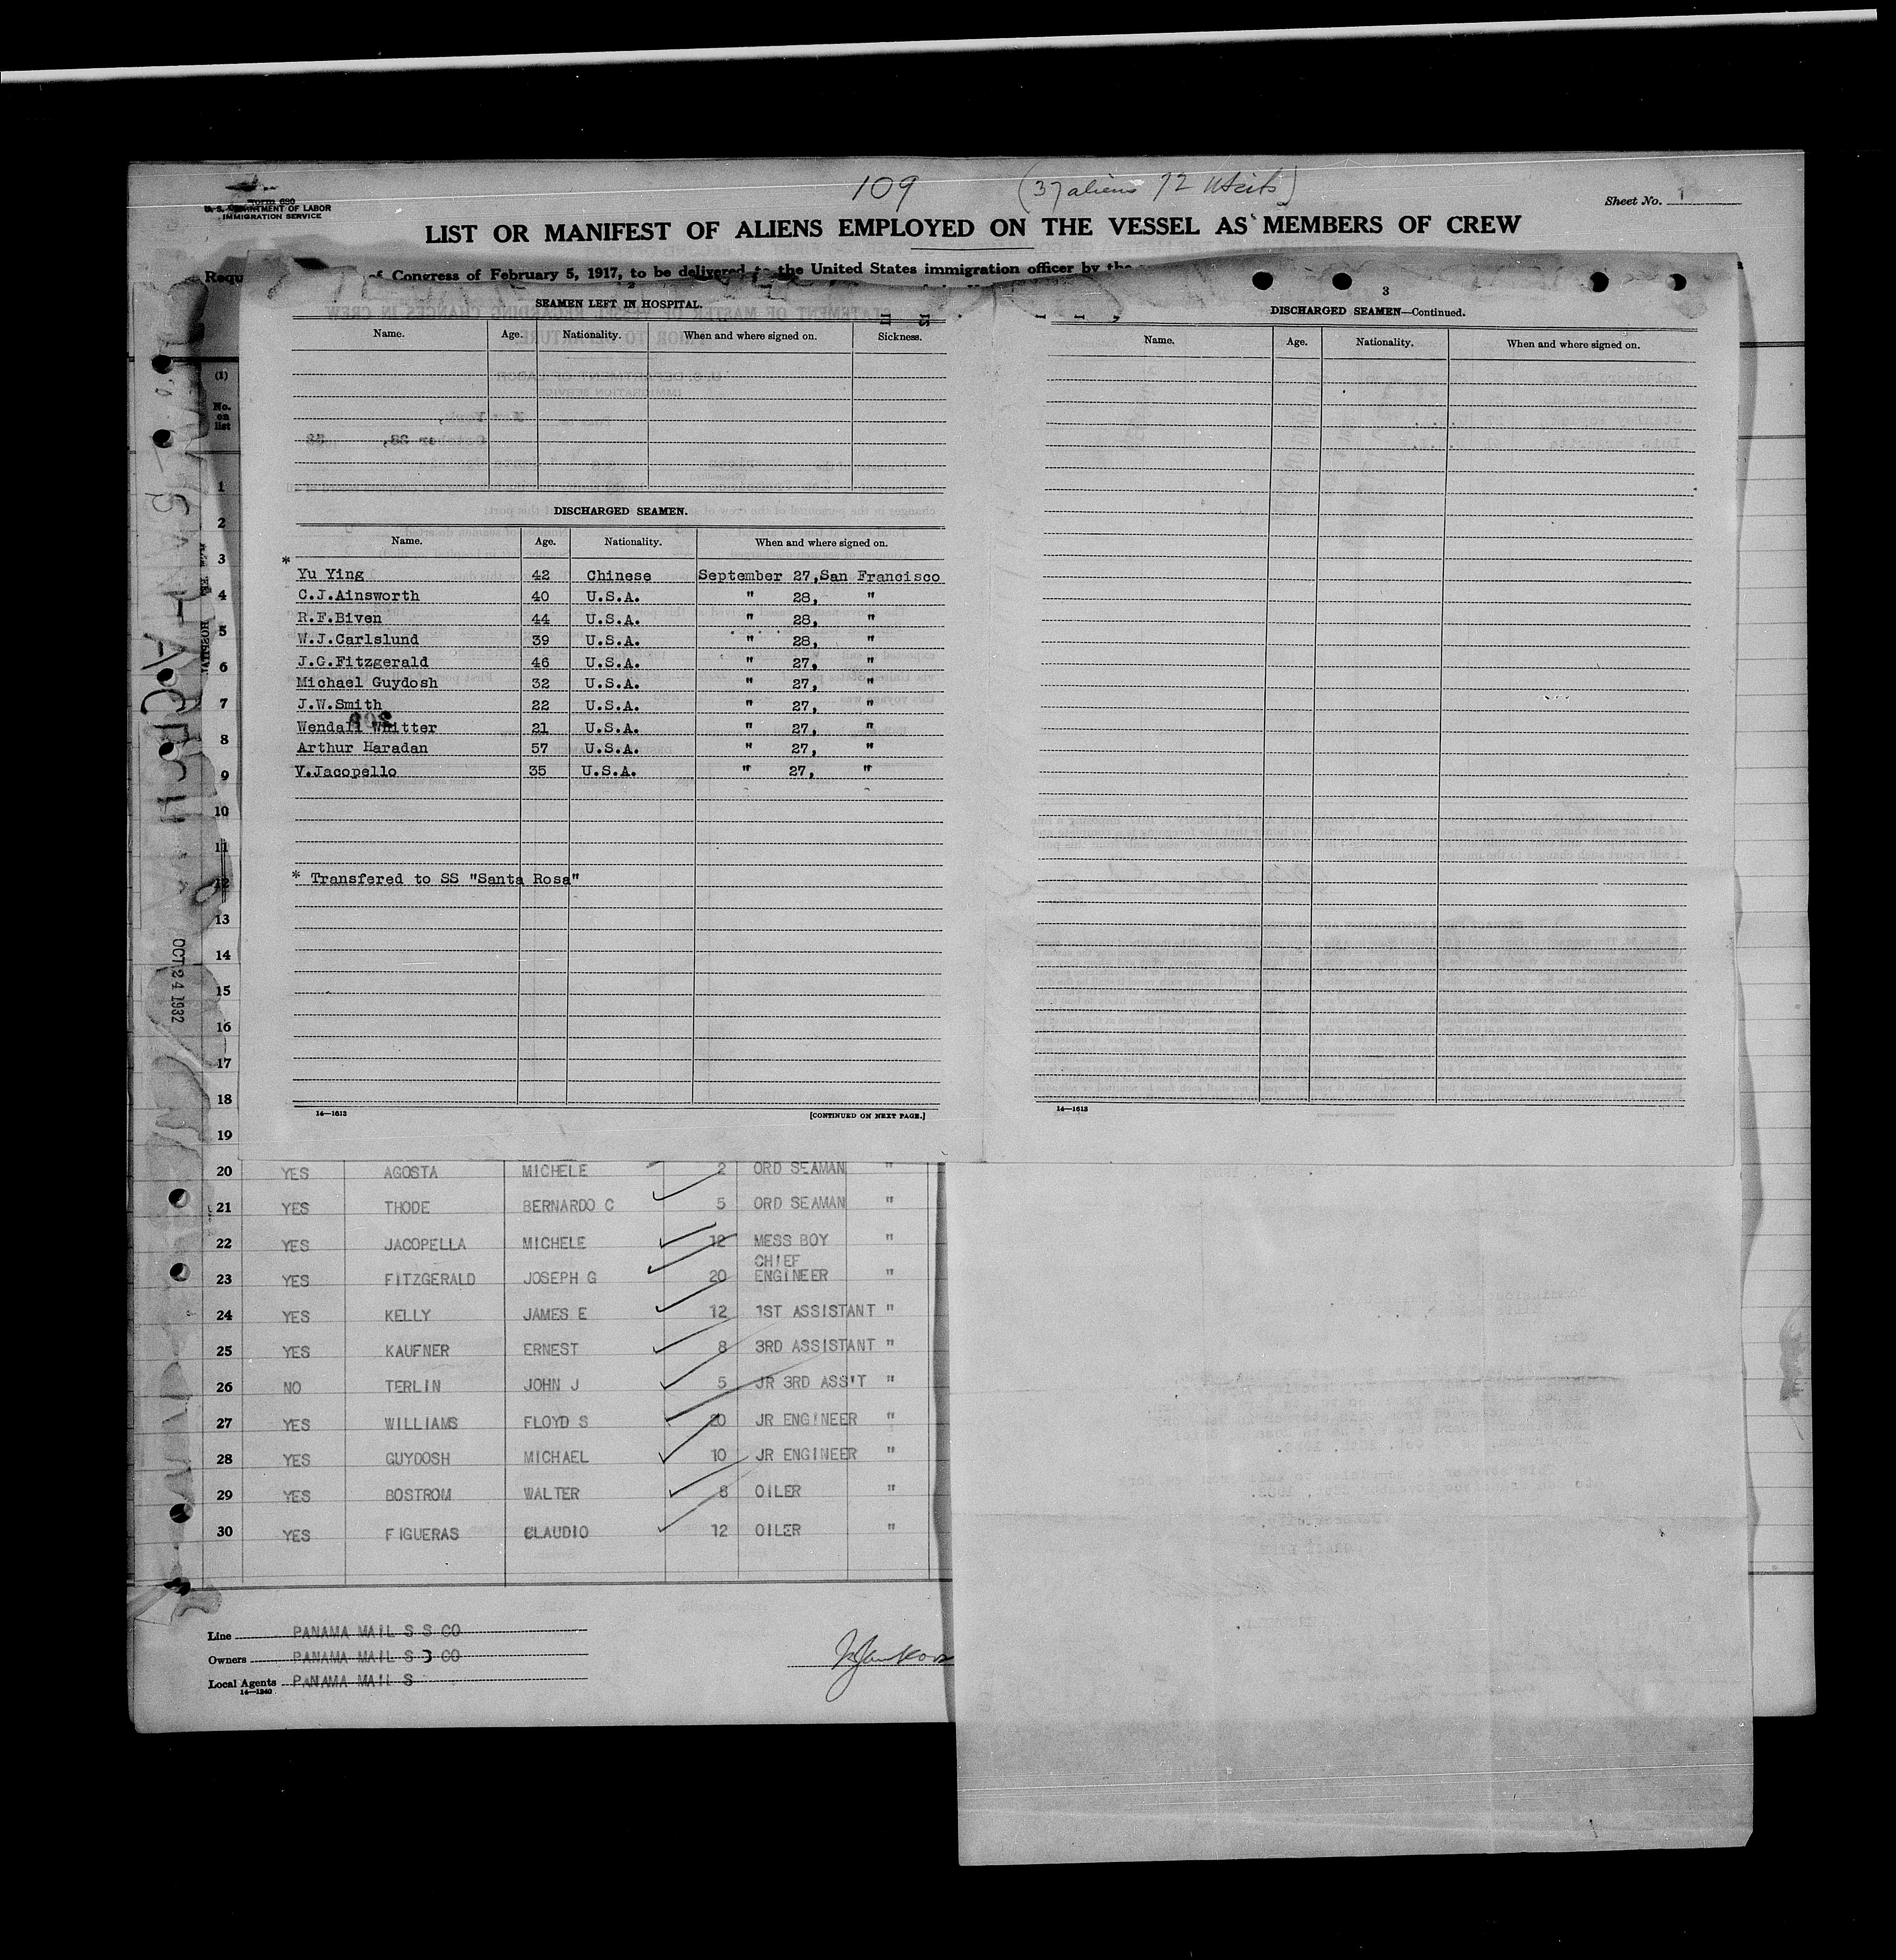 109 (37 aliens 72 Uscits)
Form 680
U. S. DEPARTMENT OF LABOR
IMMIGRATION SERVICE
Sheet No. 1
LIST OR MANIFEST OF ALIENS EMPLOYED ON THE VESSEL AS MEMBERS OF CREW
Requ of Congress of February 5, 1917, to be delivered to the United States immigration officer by the
SEAMEN LEFT IN HOSPITAL.
Name. Age. Nationality. When and where signed on. Sickness.
DISCHARGED SEAMEN.
Name. Age. Nationality. When and where signed on.
* Yu Ying 42 Chinese September 27, San Francisco
C.J.Ainsworth 40 U.S.A. " 28, "
R.F.Biven 44 U.S.A. " 28, "
W.J.Carlslund 39 U.S.A. " 28, "
J.G.Fitzgerald 46 U.S.A. " 27, "
Michael Guydosh 32 U.S.A. " 27, "
J.W.Smith 22 U.S.A. " 27, "
Wendall Whitter 21 U.S.A. " 27, "
Arthur Haradan 57 U.S.A. " 27, "
V.Jacopello 35 U.S.A. " 27, "
* Transfered to SS "Santa Rosa"
14—1613 [CONTINUED ON NEXT PAGE.]
3
DISCHARGED SEAMEN—Continued.
Name. Age. Nationality. When and where signed on.
14—1613
(1)
No.
on
list
1
2
3
4
5
6
7
8
9
10
11
12
13
14
15
16
17
18
19
OCT 24 1932
HOSPITAL
20 YES AGOSTA MICHELE 2 ORD SEAMAN "
21 YES THODE BERNARDO C 5 ORD SEAMAN "
22 YES JACOPELLA MICHELE 12 MESS BOY "
23 YES FITZGERALD JOSEPH G 20 CHIEF ENGINEER "
24 YES KELLY JAMES E 12 1ST ASSISTANT "
25 YES KAUFNER ERNEST 8 3RD ASSISTANT "
26 NO TERLIN JOHN J 5 JR 3RD ASS'T "
27 YES WILLIAMS FLOYD S 20 JR ENGINEER "
28 YES GUYDOSH MICHAEL 10 JR ENGINEER "
29 YES BOSTROM WALTER 8 OILER "
30 YES FIGUERAS CLAUDIO 12 OILER "
Line PANAMA MAIL S S CO
Owners PANAMA MAIL S S CO
Local Agents PANAMA MAIL S
14—1240